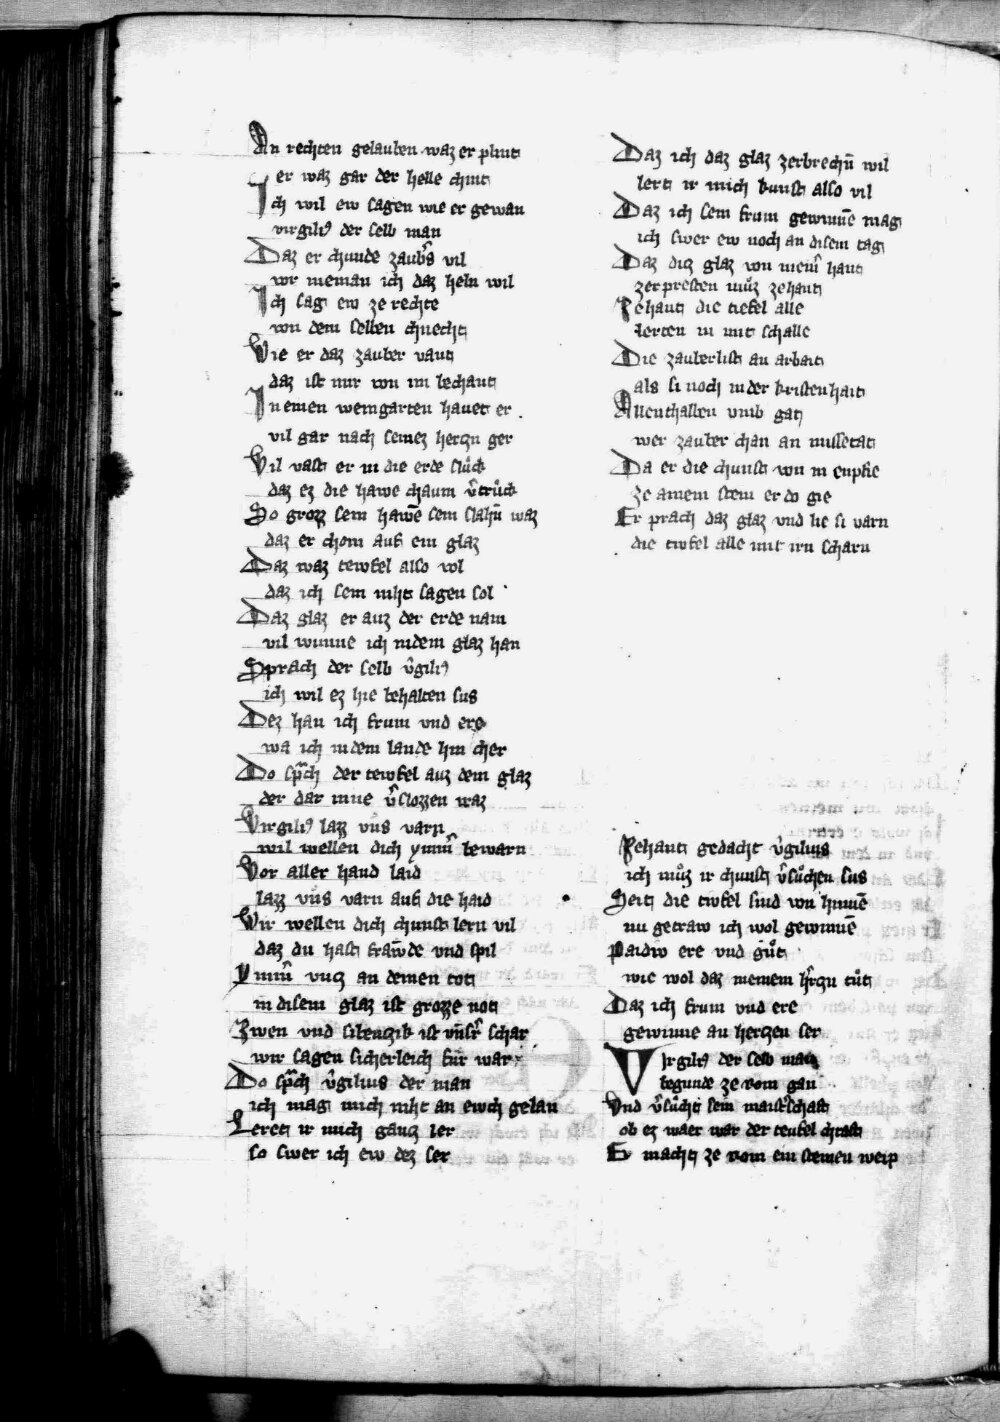 An rechten gelauben waz er plint
er waz gar der helle chint
Ich wil ew sagen wie er gewan
virgiliꝰ der selb man
Daz er chunde zaub̉s vil
vor nieman ich daz heln wil
Ich sag ew ze rechte
von dem selben chnecht
Wie er daz zauber vant
daz ist mir von im bechant
In einen weingarten hauet er
vil gar nach seinez hertzn ger
Vil vast er in die erde sluͦch
daz ez die hawe chaum v̉truͦch
So grozz sein hawē sein slahn̄ waz
daz er chom auf ein glaz
Daz waz tewfel also vol
daz ich sein niht sagen sol
Daz glaz er auz der erde nam
vil wunne ich in dem glaz han
Sprach der selb v̉giliꝰ
ich wil ez hie behalten sus
Dez han ich frum vnd ere
wa ich in dem lande hin cher
Do sp̄ch der tewfel auz dem glaz
der dar inne v̉slozzen waz
Virgiliꝰ lazz vns varn
wil wellen dich ymm̉ bewarn
Vor aller hand laid
lazz vns varn auf die haid
Wir wellen dich chunst lern vil
daz du hast frawde vnd spil
Ymm̉ vntz an deinen tot
in disem glaz ist grozze not
Zwen vnd sibentzik ist vns̉r schar
wir sagen sicherleich fur war
Do sp̄ch v̉gilius der man
ich mag mich niht an ewch gelan
Leret ir mich gantz ler
so swer ich ew dez ser
Daz ich daz glaz zerbrechn̄ wil
lert ir mich kunst also vil
Daz ich sein frum gewinnē mag
ich swer ew noch an disem tag
Daz ditz glaz von meinr̉ hant
zerpresten muͦz zehant
Zehant die tiefel alle
lerten in mit schalle
Die zauberlist an arbait
als si noch in der kristenhait
Allenthalben vmb gat
wer zauber chan an missetat
Da er die chunst von in enpfie
ze ainem stein er do gie
Er prach daz glaz vnd lie si varn
die tiwfel alle mit irn scharn
Zehant gedacht v̉gilius
ich muͦz ir chunst v̉suͦchen sus
Seit die tiwfel sind von hinnē
nu getraw ich wol gewinnē
Paidiv ere vnd guͦt
wie wol daz meinem h̉tzn tuͦt
Daz ich frum vnd ere
gewinne an hertzen ser
Virgiliꝰ der selb man
begunde ze rom gan
Vnd v̉suͦcht sein maist̉schaft
ob ez waer war der teufel chraft
Er macht ze rom ein steinen weip